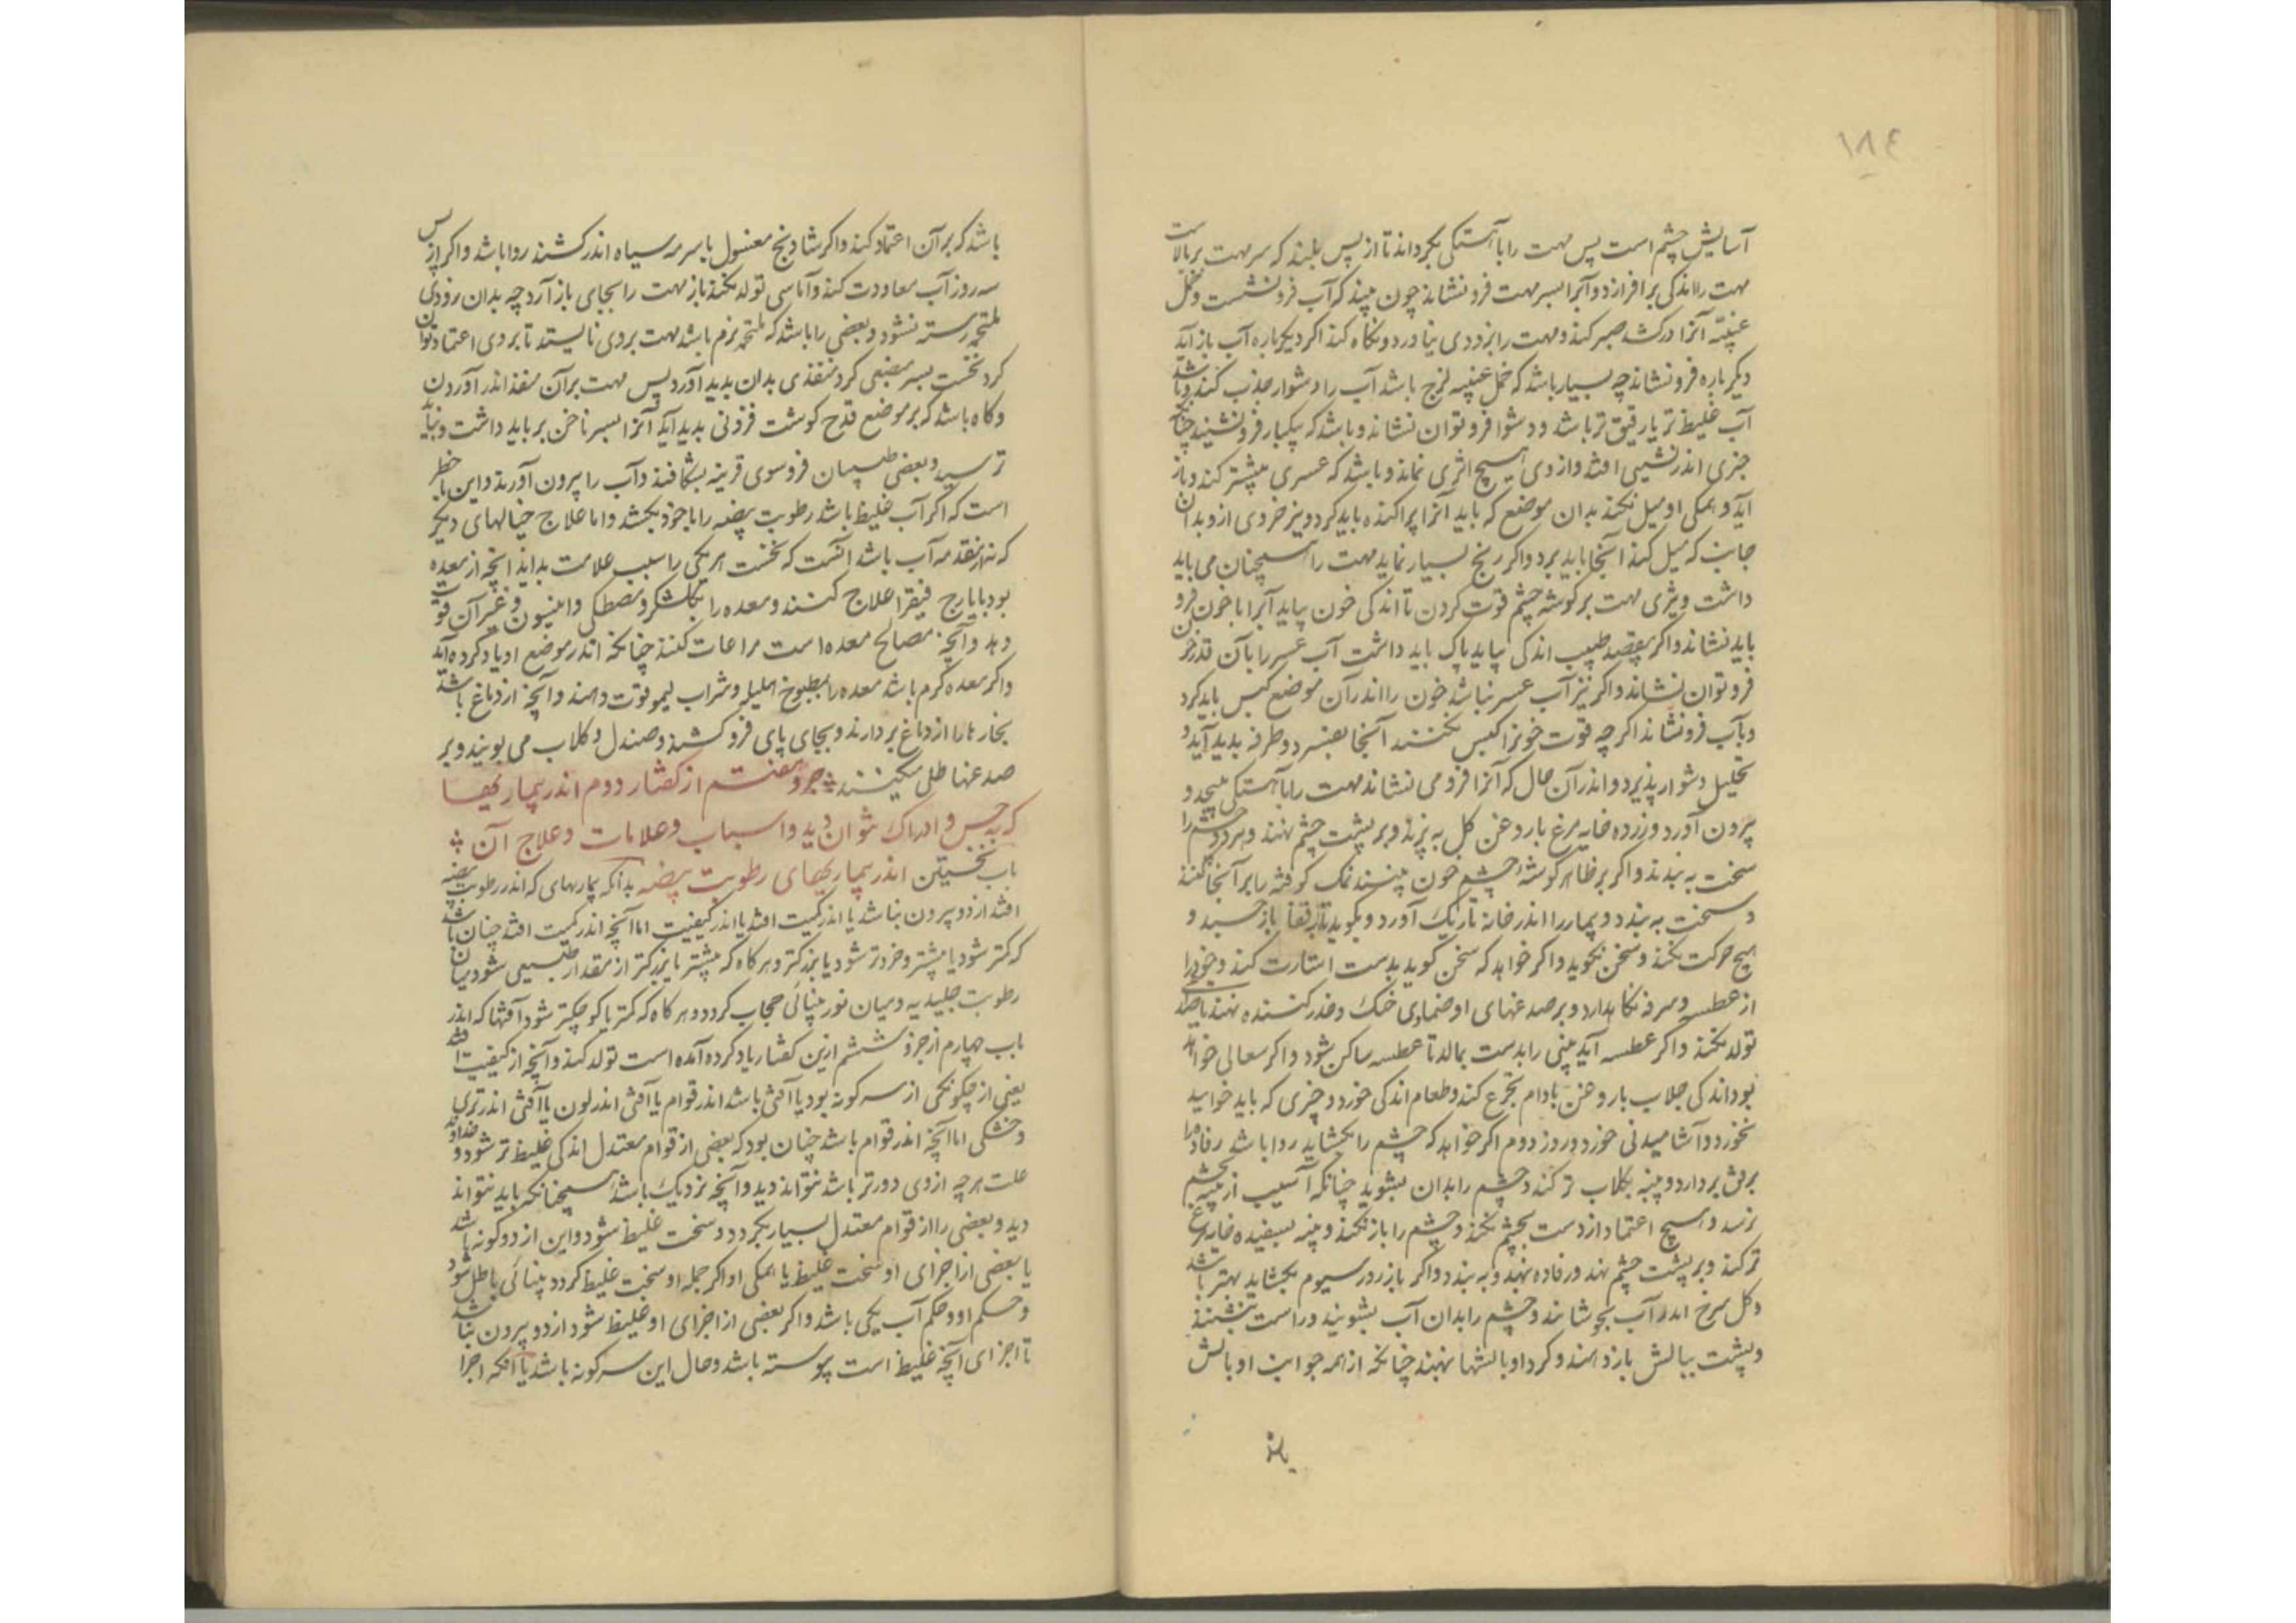 ١٨٤
آسایش چشم است پس مهت را باهستکی بکرداند تا از پس بلند که سر مهت بر بالاست
مهت را اندکی برافرازد و آب را بسر مهت فرو نشاند چون بیند که آب فرو نشست و خمل
عنبیّه آنرا درکشد صبر کند و مهت را بزودی نیاورد و نکاه کند اکر دیکر باره آب باز آید
دیکر باره فرو نشاند چه بسیار باشد که خمل عنبیه لزج باشد آب را دشوار جذب کند و باشد
آب غلیظ تر یا رقیق تر باشد و دشوار فرو توان نشاند و باشد که بیکبار فرو نشیند چنانکه
چیزی اندر نشیبی افتد و از وی هیچ اثری نماند و باشد که عسری بیشتر کند و باز
آید و همکی او میل نکند بدان موضع که باید آنرا پراکنده باید کرد و نیز خردی ازو بدان
جانب که میل کند آنجا باید برد و اکر رنج بسیار نماید مهت را همچنان می باید
داشت و تیزی مهت بر کوشه چشم قوت کردن تا اندکی خون بیاید آنرا با خون فرو
باید نشاند و اکر بیقصد طبیب اندکی بیاید پاک باید داشت آب عسر را بآن قدر خون
فرو توان نشاند و اکر نیز آب عسر نباشد خون را اندر آن موضع کبس باید کرد
و بآب فرو نشاند اکر چه قوت خونرا کبس نکنند آنجا بفسرد و طرفه بدید آید و
تحلیل دشوار پذیرد و اندر آن حال که آنرا فرو می نشاند مهت را باهستکی می پیچد و
بیرون آورد و زرده خایه مرغ با روغن کل به بزند و بر پشت چشم نهند و هر دو چشم را
سخت به بندند و اکر بر ظاهر کوشهٔ چشم خون بینند نمک کوفته را بر آنجا کنند
و سخت به بندد و بیمار را اندر خانه تاریک آورد و بکوید تا بر قفا باز خسبد و
هیچ حرکت نکند و سخن نکوید و اکر خواهد که سخن کوید بدست اشارت کند و خود را
از عطسه و سرفه نکاهدارد و بر صدغهای او ضمادی خنک و خدر کننده نهند تا صداع
تولد نکند و اکر عطسه آید بینی را بدست بمالد تا عطسه ساکن شود و اکر سعالی خواهد
بود اندکی جلاب با روغن بادام تجرع کند و طعام اندکی خورد و چیزی که باید خوایید
نخورد و آشامیدنی خورد و روز دوم اکر خواهد که چشم را بکشاید روا باشد رفاده را
برفق بردارد و پنبه بکلاب تر کند و چشم را بدان بشوید چنانکه آسیب از پنبه بچشم
نرسد و هیچ اعتماد از دست بچشم نکند و چشم را باز نکند و پنبه بسفیده خایه مرغ
تر کند و بر پشت چشم نهد و رفاده نهد و به بندد و اکر باز روز سیوم بکشاید بهتر باشد
و کل سرخ اندر آب بجوشانند و چشم را بدان آب بشویند و راست بنشیند
و پشت ببالش باز دهند و کرد او بالشها نهند چنانکه از همه جوانب او بالش
باشد
باشد که بر آن اعتماد کند و اکر شادنج مغسول با سرمه سیاه اندر کشند روا باشد و اکر از پس
سه روز آب معاودت کند و آماسی تولد نکند باز مهت را بجای باز آرد چه بدان زودی
ملتحمه رسته نشود و بعضی را باشد که ملتحمه نرم باشد مهت بر وی نایستد تا بر وی اعتماد توان
کرد نخست بسر مبضعی کرد منفذی بدان بدید آورد پس مهت بر آن منفذ اندر آوردن
و کاه باشد که بر موضع قدح کوشت فزونی بدید آید آنرا بسر ناخن بر باید داشت و نباید
ترسید و بعضی طبیبان فروسوی قرنیه بشکافند و آب را بیرون آورند و این با خطر
است که اکر آب غلیظ باشد رطوبت بیضه را با خود بکشد و اما علاج خیالهای دیکر
که نه از مقدمه آب باشد آنست که نخست هر یکی را سبب علامت بداند آنچه از معده
بود بایارج فیقرا علاج کنند و معده را بکلشکر و مصطکی و انیسون و غیر آن قوت
دهد و آنچه مصالح معده است مراعات کنند چنانکه اندر موضع او یاد کرده آید
و اکر معده کرم باشد معده را بمطبوخ هلیله و شراب لیمو قوت دهند و آنچه از دماغ باشد
بخارها را از دماغ بردارند و بجای پای فرو کشند و صندل و کلاب می بویند و بر
صدغها طلی میکنند جزو هفتم از کفتار دوم اندر بیماریها
که بحس و ادراک نتوان دید و اسباب و علامات و علاج آن
باب نخستین اندر بیماریهای رطوبت بیضه بدانکه بیماریهای که اندر رطوبت بیضه
افتد از دو بیرون نباشد یا اندر کمیت افتد یا اندر کیفیت اما آنچه اندر کمیت افتد چنان باشد
که کمتر شود یا بیشتر و خردتر شود یا بزرکتر و هر کاه که بیشتر یا بزرکتر از مقدار طبیعی شود میان
رطوبت جلیدیه و میان نور بینائی حجاب کردد و هر کاه که کمتر یا کوچکتر شود آفتها که اندر
باب چهارم از جزو ششم ازین کفتار یاد کرده آمده است تولد کند و آنچه از کیفیت افتد
یعنی از چکونکی از سه کونه بود یا آفتی باشد اندر قوام یا آفتی اندر لون یا آفتی اندر تری
و خشکی اما آنچه اندر قوام باشد چنان بود که بعضی از قوام معتدل اندکی غلیظ تر شود و خداوند
علت هر چه از وی دورتر باشد نتواند دید و آنچه نزدیک باشد همچنانکه باید نتواند
دید و بعضی را از قوام معتدل بسیار بکردد و سخت غلیظ شود و این از دو کونه باشد
یا بعضی از اجزای او سخت غلیظ یا همکی او اکر جمله او سخت غلیظ کردد بینائی باطل شود
و حکم او و حکم آب یکی باشد و اکر بعضی از اجزای او غلیظ شود از دو بیرون نباشد
تا اجزای آنچه غلیظ است پیوسته باشد و حال این سه کونه باشد یا آنکه اجزا